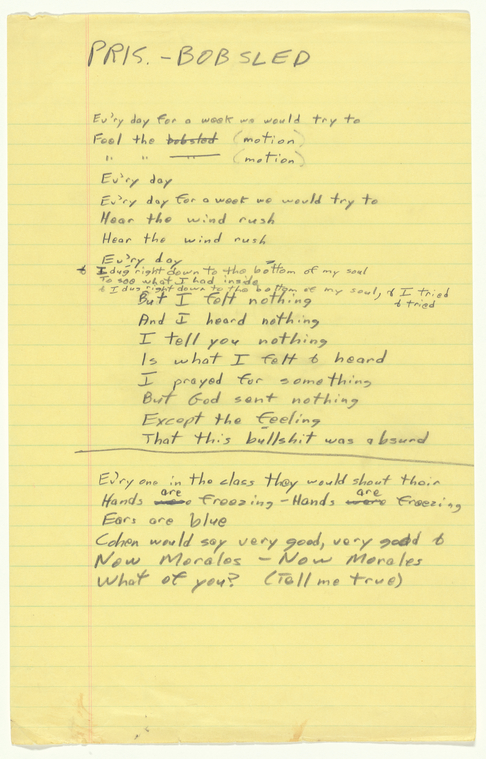 PRIS. - BOBSLED
Ev'ry day for a week we would try to
Feel the bobsled (motion)
" " — (motion)
Ev'ry day
Ev'ry day for a week we would try to
Hear the wind rush
Hear the wind rush
Ev'ry day
& I dug right down to the bottom of my soul
To see what I had inside
& I dug right down to the bottom of my soul, & I tried
& tried
But I felt nothing
And I heard nothing
I tell you nothing
Is what I felt & heard
I prayed for something
But God sent nothing
Except the feeling
That this bullshit was absurd
Ev'ry one in the class they would shout their
Hands were are freezing - Hands were are freezing
Ears are blue
Cohen would say very good, very good &
Now Morales - Now Morales
What of you? (Tell me true)